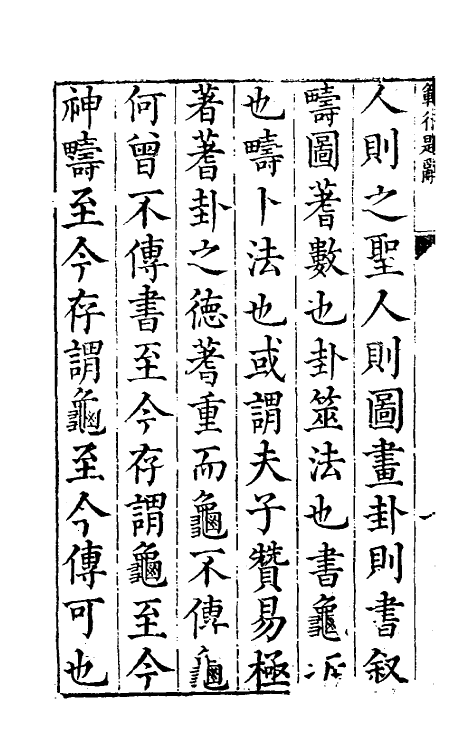 範衍題辭
一
人則之聖人則圖畫卦則書叙
疇圖蓍數也卦筮法也書龜兆
也疇卜法也或謂夫子贊易極
著蓍卦之德蓍重而龜不傳龜
何曾不傳書至今存謂龜至今
神疇至今存謂龜至今傳可也